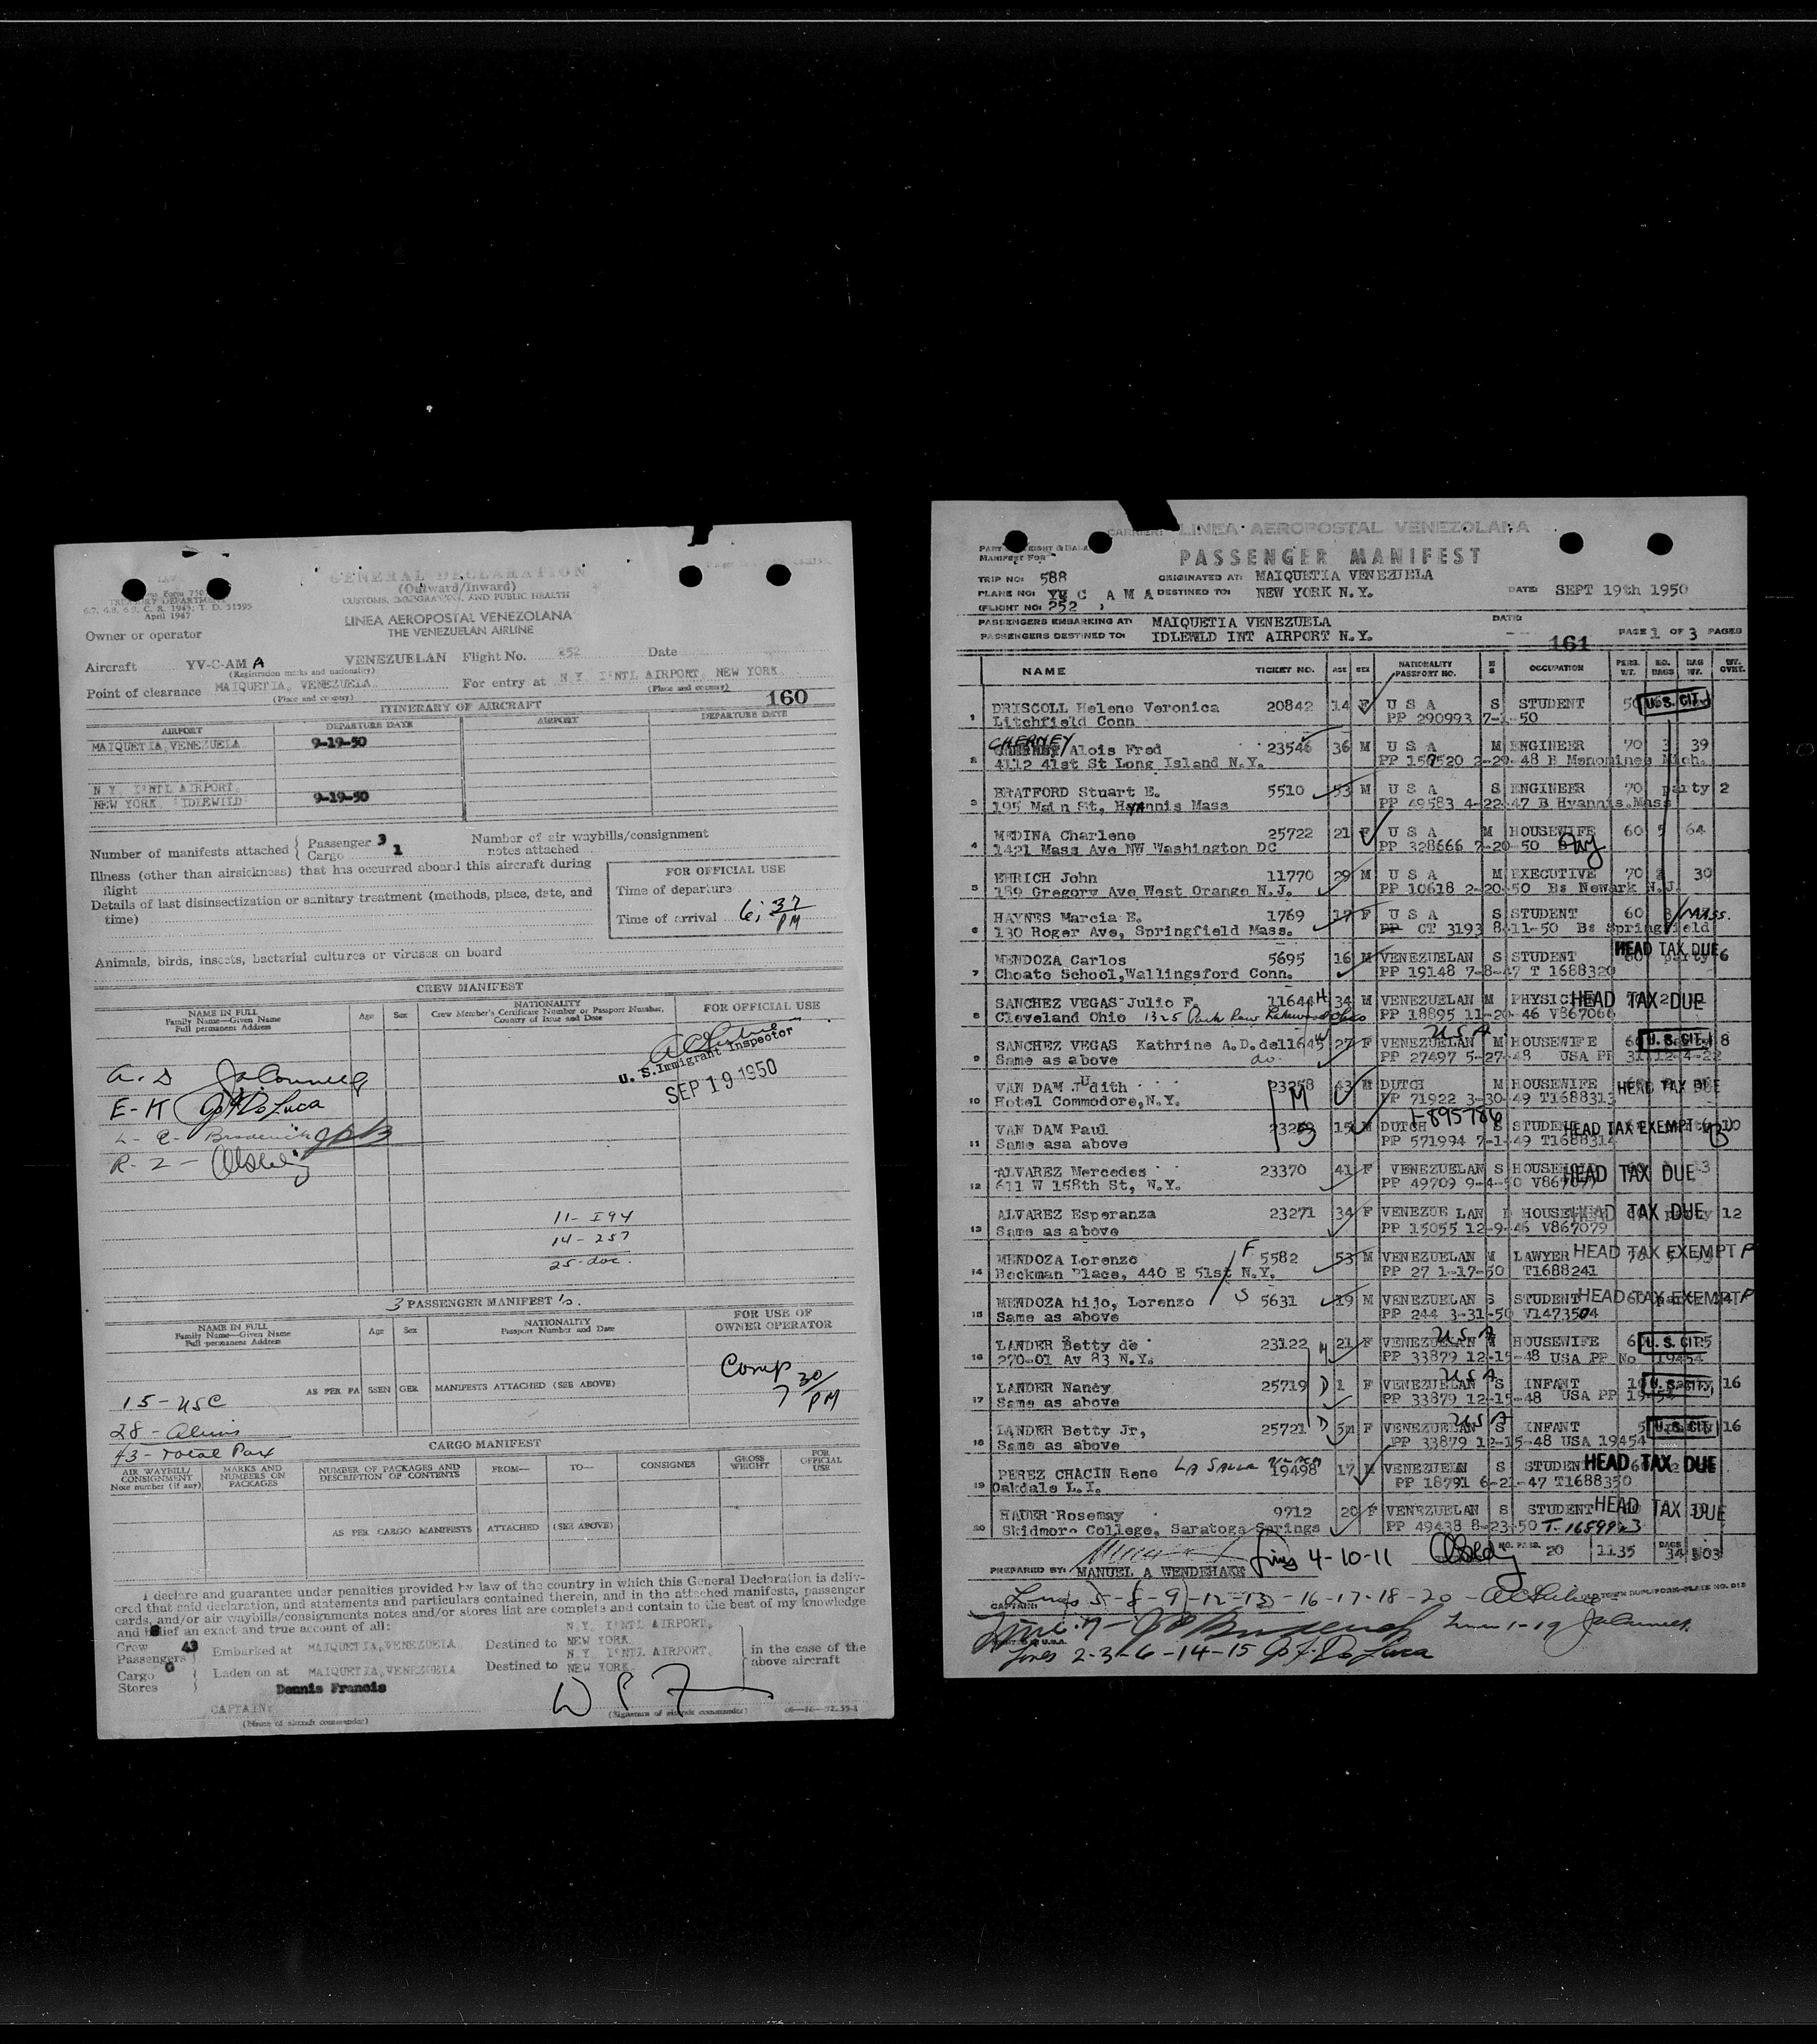 GENERAL DECLARATION
(Outward/Inward)
CUSTOMS, IMMIGRATION, AND PUBLIC HEALTH
TREASURY DEPARTMENT
April 1947
LINEA AEROPOSTAL VENEZOLANA
THE VENEZUELAN AIRLINE
Owner or operator
Aircraft YV-C-AM A VENEZUELAN Flight No. 252 Date
(Registration marks and nationality)
Point of clearance MAIQUETIA, VENEZUELA For entry at N.Y. I'NTL AIRPORT, NEW YORK
(Place and country) (Place and country) 160
ITINERARY OF AIRCRAFT
AIRPORT DEPARTURE DATE AIRPORT DEPARTURE DATE
MAIQUETIA, VENEZUELA 9-19-50
N.Y. I'NTL AIRPORT,
NEW YORK IDLEWILD 9-19-50
Number of manifests attached Passenger 3 Number of air waybills/consignment
Cargo 1 notes attached
Illness (other than airsickness) that has occurred aboard this aircraft during
flight
Details of last disinsectization or sanitary treatment (methods, place, date, and
time)
FOR OFFICIAL USE
Time of departure
Time of arrival 6:37 PM
Animals, birds, insects, bacterial cultures or viruses on board
CREW MANIFEST
NAME IN FULL
Family Name—Given Name
Full permanent Address
Age Sex
NATIONALITY
Crew Member's Certificate Number or Passport Number,
Country of Issue and Date
FOR OFFICIAL USE
U. S. Immigrant Inspector
SEP 19 1950
E-K
R-2-
11- I94
14- 257
25-doc.
3 PASSENGER MANIFEST 's.
NAME IN FULL
Family Name—Given Name
Full permanent Address
Age Sex
NATIONALITY
Passport Number and Date
FOR USE OF
OWNER OPERATOR
Comp
7 30/PM
AS PER PA SSEN GER MANIFESTS ATTACHED (SEE ABOVE)
15-USC
28-Aliens
43-Total Pax
CARGO MANIFEST
AIR WAYBILL/
CONSIGNMENT
Note number (if any)
MARKS AND
NUMBERS ON
PACKAGES
NUMBER OF PACKAGES AND
DESCRIPTION OF CONTENTS
FROM— TO— CONSIGNEE
GROSS
WEIGHT
FOR
OFFICIAL
USE
AS PER CARGO MANIFESTS ATTACHED (SEE ABOVE)
I declare and guarantee under penalties provided by law of the country in which this General Declaration is deliv-
ered that said declaration, and statements and particulars contained therein, and in the attached manifests, passenger
cards, and/or air waybills/consignments notes and/or stores list are complete and contain to the best of my knowledge
and belief an exact and true account of all:
Crew
Passengers 43 Embarked at MAIQUETIA, VENEZUELA Destined to N.Y. I'NTL AIRPORT, NEW YORK
Cargo 0
Stores Laden on at MAIQUETIA, VENEZUELA Destined to N.Y I'NTL AIRPORT, NEW YORK
in the case of the
above aircraft
Dennis Francis
CAPTAIN:
(Name of aircraft commander) (Signature of aircraft commander)
CARRIER: LINEA AEROPOSTAL VENEZOLANA
PASSENGER MANIFEST
MANIFEST FOR
TRIP NO: 588 ORIGINATED AT: MAIQUETIA VENEZUELA
PLANE NO: YV C AMA DESTINED TO: NEW YORK N.Y. DATE: SEPT 19th 1950
(FLIGHT NO: 252 )
PASSENGERS EMBARKING AT: MAIQUETIA VENEZUELA DATE:
PASSENGERS DESTINED TO: IDLEWLD INT AIRPORT N.Y. 161 PAGE 1 OF 3 PAGES
NAME TICKET NO. AGE SEX NATIONALITY PASSPORT NO. M S OCCUPATION PERS. WT. NO. BAGS BAG WT. WT. OVHT.
1 DRISCOLL Helene Veronica 20842 14 F U S A S STUDENT U.S. CIT.
Litchfield Conn PP 290993 7-1-50
2 CHERNEY Alois Fred 23546 36 M U S A M ENGINEER 70 3 39
4112 41st St Long Island N.Y. PP 157520 2-29-48 B Menominee Mich.
3 BRATFORD Stuart E. 5510 53 M U S A S ENGINEER 70 party 2
195 Main St, Hyannis Mass PP 49583 4-22-47 B Hyannis Mass
4 MEDINA Charlene 25722 21 F U S A M HOUSEWIFE 60 5 64
1421 Mass Ave NW Washington DC PP 328666 7-20-50
5 EHRICH John 11770 29 M U S A M EXECUTIVE 70 2 30
139 Gregory Ave West Orange N.J. PP 10618 2-20-50 Bs Newark N.J.
6 HAYNES Marcia E. 1769 17 F U S A S STUDENT 60
130 Roger Ave, Springfield Mass. PP CT 3193 8-11-50 Bs Springfield Mass.
7 MENDOZA Carlos 5695 16 M VENEZUELAN S STUDENT HEAD TAX DUE party 6
Choate School, Wallingsford Conn. PP 19148 7-8-47 T 1688320
8 SANCHEZ VEGAS Julio F. 11644 H 34 M VENEZUELAN M HEAD TAX DUE
Cleveland Ohio 1325 Park Row Lakewood Ohio PP 18895 11-20-46 V867066
9 SANCHEZ VEGAS Kathrine A.D. de 11645 W 27 F VENEZUELAN USA M HOUSEWIFE U.S. CIT. 8
Same as above do. PP 27497 5-27-48 USA PP
10 VAN DAM Judith 23258 M 43 M DUTCH M HOUSEWIFE HEAD TAX DUE
Hotel Commodore, N.Y. PP 71922 3-30-49 T1688313
11 VAN DAM Paul S 15 M DUTCH 1-895786 S STUDENT HEAD TAX EXEMPT 10
Same asa above PP 571994 7-1-49 T1688314
12 ALVAREZ Mercedes 23370 41 F VENEZUELAN S HEAD TAX DUE
611 W 158th St, N.Y. PP 49709
13 ALVAREZ Esperanza 23271 34 F VENEZUE LAN HEAD TAX DUE 12
Same as above PP 15055 12-9-46 V867079
14 MENDOZA Lorenzo F 5582 53 M VENEZUELAN M LAWYER HEAD TAX EXEMPT P
Beckman Place, 440 E 51st N.Y. PP 27 1-17-50 T1688241
15 MENDOZA hijo, Lorenzo S 5631 19 M VENEZUELAN S STUDENT HEAD TAX EXEMPT P
Same as above PP 244 3-31-50 V1473504
16 LANDER Betty de 23122 21 F VENEZUELAN USA M HOUSEWIFE U.S. CIT.
270-01 Av 83 N.Y. PP 33879 12-15-48 USA PP No 19454
17 LANDER Nancy 25719 D 1 F VENEZUELAN USA S INFANT 16
Same as above PP 33879 12-15-48 USA PP
18 LANDER Betty Jr, 25721 D 5m F VENEZUELAN USA S INFANT U.S. CIT. 16
Same as above PP 33879 12-15-48 USA 19454
19 PEREZ CHACIN Rene LA SALLE 19498 17 M VENEZUELN S STUDENT HEAD TAX DUE
Oakdale L.I. PP 18791 6-21-47 T1688350
20 HAUER Rosemay 9712 20 F VENEZUELAN S STUDENT HEAD TAX DUE
Skidmore College, Saratoga Springs PP 49438 8-23-50
PREPARED BY: MANUEL A WENDEHAKE Lines 4-10-11 NO. PASS. 20 1135 BAGS 34 503
CAPTAIN: Lines 5-8-9-12-13-16-17-18-20-
Line 7- Lines 1-19
Lines 2-3-6-14-15